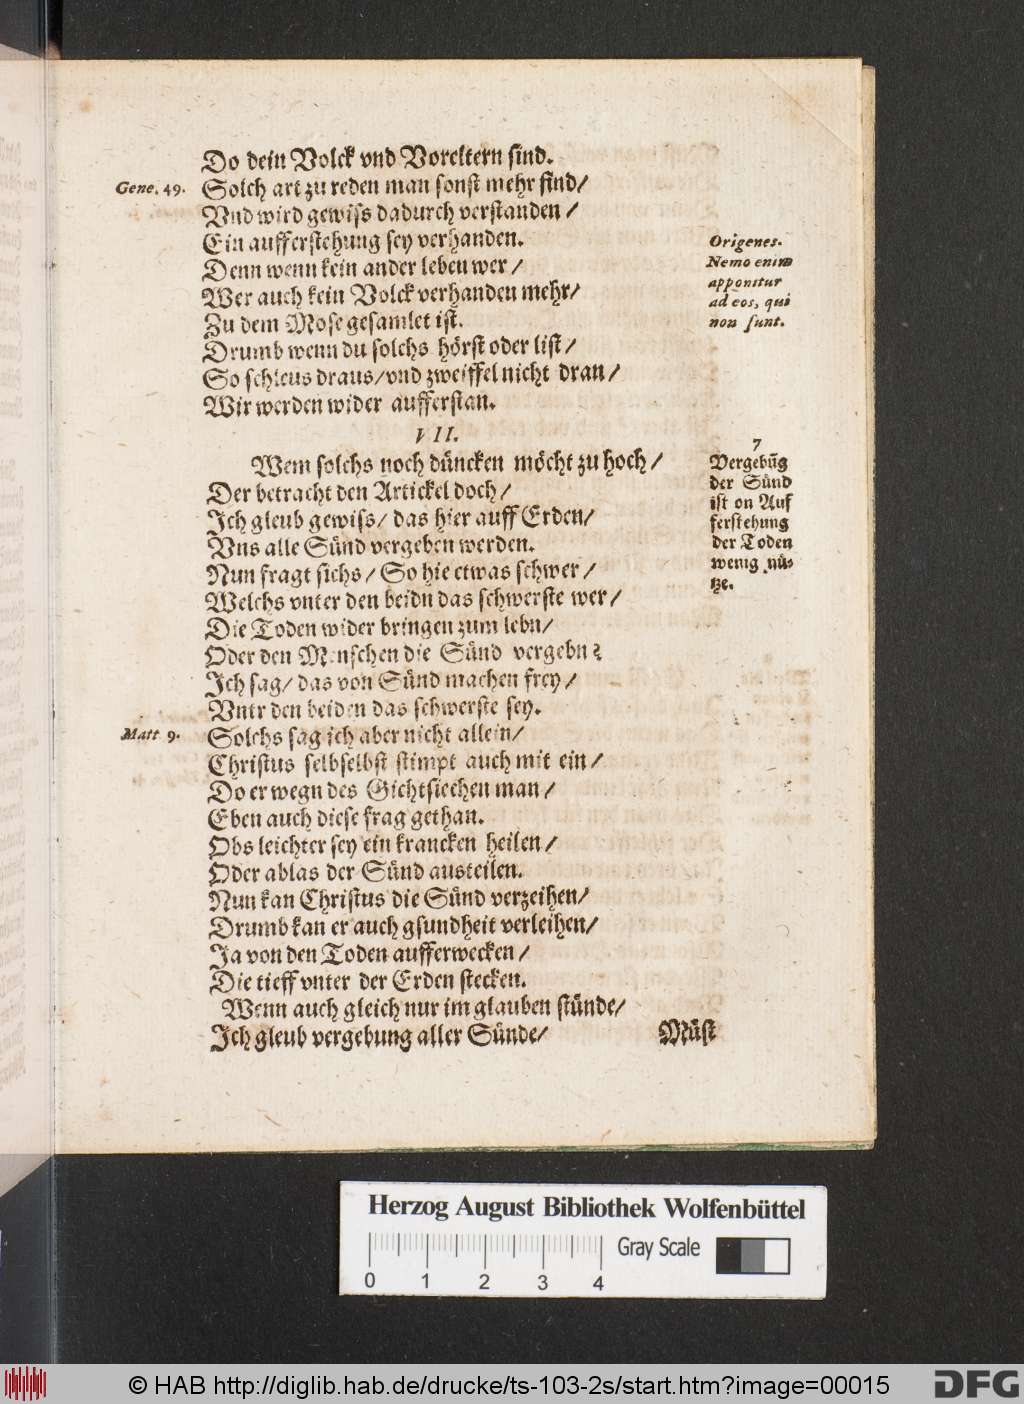 Do dein Volck vnd Voreltern sind.
Gene. 49.
Solch art zu reden man sonst mehr find/
Vnd wird gewiss dadurch verstanden/
Ein aufferstehung sey verhanden.
Denn wenn kein ander leben wer/
Wer auch kein Volck verhanden mehr/
Zu dem Mose gesamlet ist.
Drumb wenn du solchs hörst oder list/
So schleus draus/vnd zweiffel nicht dran/
Wir werden wider aufferstan.
Origenes.
Nemo enim
apponitur
ad eos, qui
non sunt.
VII.
Wem solchs noch düncken möcht zu hoch/
Der betracht den Artickel doch/
Ich gleub gewiss/ das hier auff Erden/
Vns alle Sünd vergeben werden.
Nun fragt sichs/ So hie etwas schwer/
Welchs vnter den beidn das schwerste wer/
Die Toden wider bringen zum lebn/
Oder den Menschen die Sünd vergebn?
Ich sag/ das von Sünd machen frey/
Vntr den beiden das schwerste sey.
7
Vergebūg
der Sünd
ist on Auf
ferstehung
der Toden
wenig nü-
tze.
Matt 9.
Solchs sag ich aber nicht allein/
Christus selbselbst stimpt auch mit ein/
Do er wegn des Gichtsiechen man/
Eben auch diese frag gethan.
Obs leichter sey ein krancken heilen/
Oder ablas der Sünd austeilen.
Nun kan Christus die Sünd verzeihen/
Drumb kan er auch gsundheit verleihen/
Ja von den Toden aufferwecken/
Die tieff vnter der Erden stecken.
Wenn auch gleich nur im glauben stünde/
Ich gleub vergebung aller Sünde/
Müst
Herzog August Bibliothek Wolfenbüttel
Gray Scale
0 1 2 3 4
© HAB http://diglib.hab.de/drucke/ts-103-2s/start.htm?image=00015
DFG